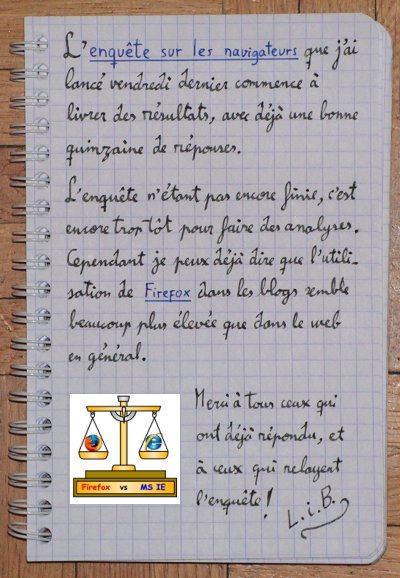 L'enquête sur les navigateurs que j'ai
lancé vendredi dernier commence à
livrer des résultats, avec déjà une bonne
quinzaine de réponses.
L'enquête n'étant pas encore finie, c'est
encore trop tôt pour faire des analyses.
Cependant je peux déjà dire que l'utili-
sation de Firefox dans les blogs semble
beaucoup plus élevée que dans le web
en général.
Merci à tous ceux qui
ont déjà répondu, et
à ceux qui relayent
l'enquête !
L.i.B.
Firefox vs MS IE